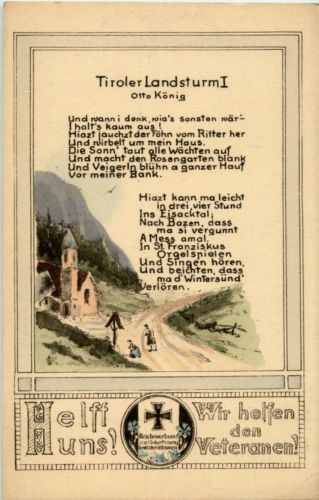 Tiroler Landsturm I
Otto König
Und wann i denk, wia's sonsten wär'-
I halt's kaum aus!
Hiazt jauchzt der Föhn vom Ritter her
Und wirbelt um mein Haus.
Die Sonn' taut alle Wächten auf
Und macht den Rosengarten blank
Und Veigerln blühn a ganzer Hauf
Vor meiner Bank.
Hiazt kann ma leicht
in drei, vier Stund
Ins Eisacktal;
Nach Bozen, dass
ma si vergunnt
A Mess amal.
In St. Franziskus
Orgelspielen
Und Singen hören,
Und beichten, dass
ma d' Wintersünd'
Verlören.
Helft uns!
Wir helfen den Veteranen!
Reichsverbund